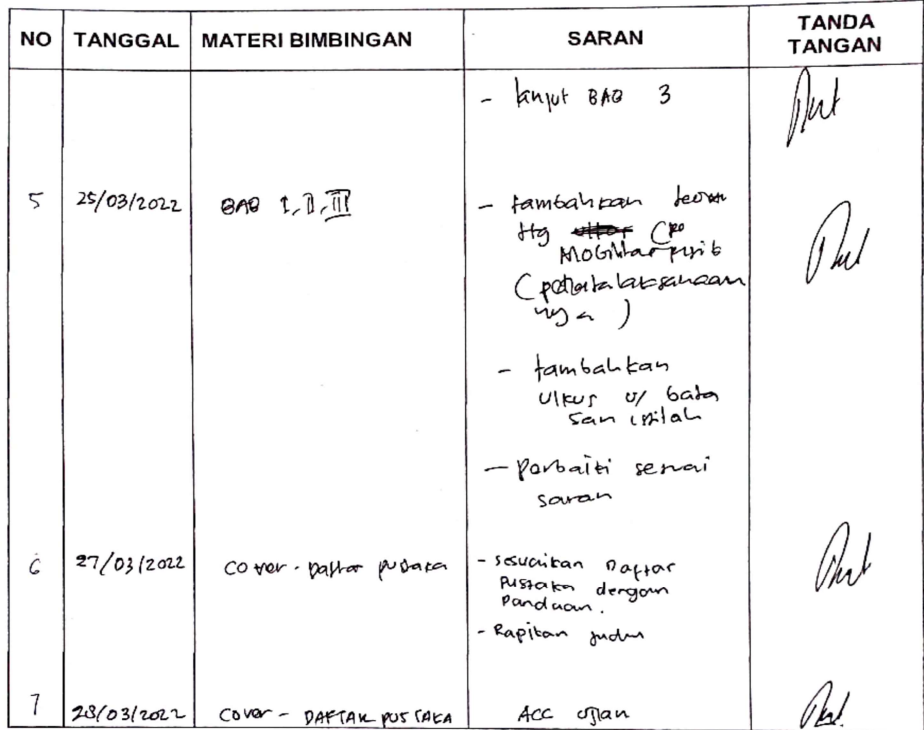 NO TANGGAL MATERI BIMBINGAN SARAN TANDA TANGAN
- lanjut BAB 3
5 25/03/2022 BAB I, II, III - tambahkan teori
ttg
(penatalaksanaan
nya)
- tambahkan
ulkus u/ bata
san istilah
- Perbaiki sesuai
saran
6 27/03/2022 cover - Daftar pustaka - sesuaikan Daftar
Pustaka dengan
Panduan.
- Rapikan judul
7 28/03/2022 Cover - DAFTAR PUSTAKA ACC ujian